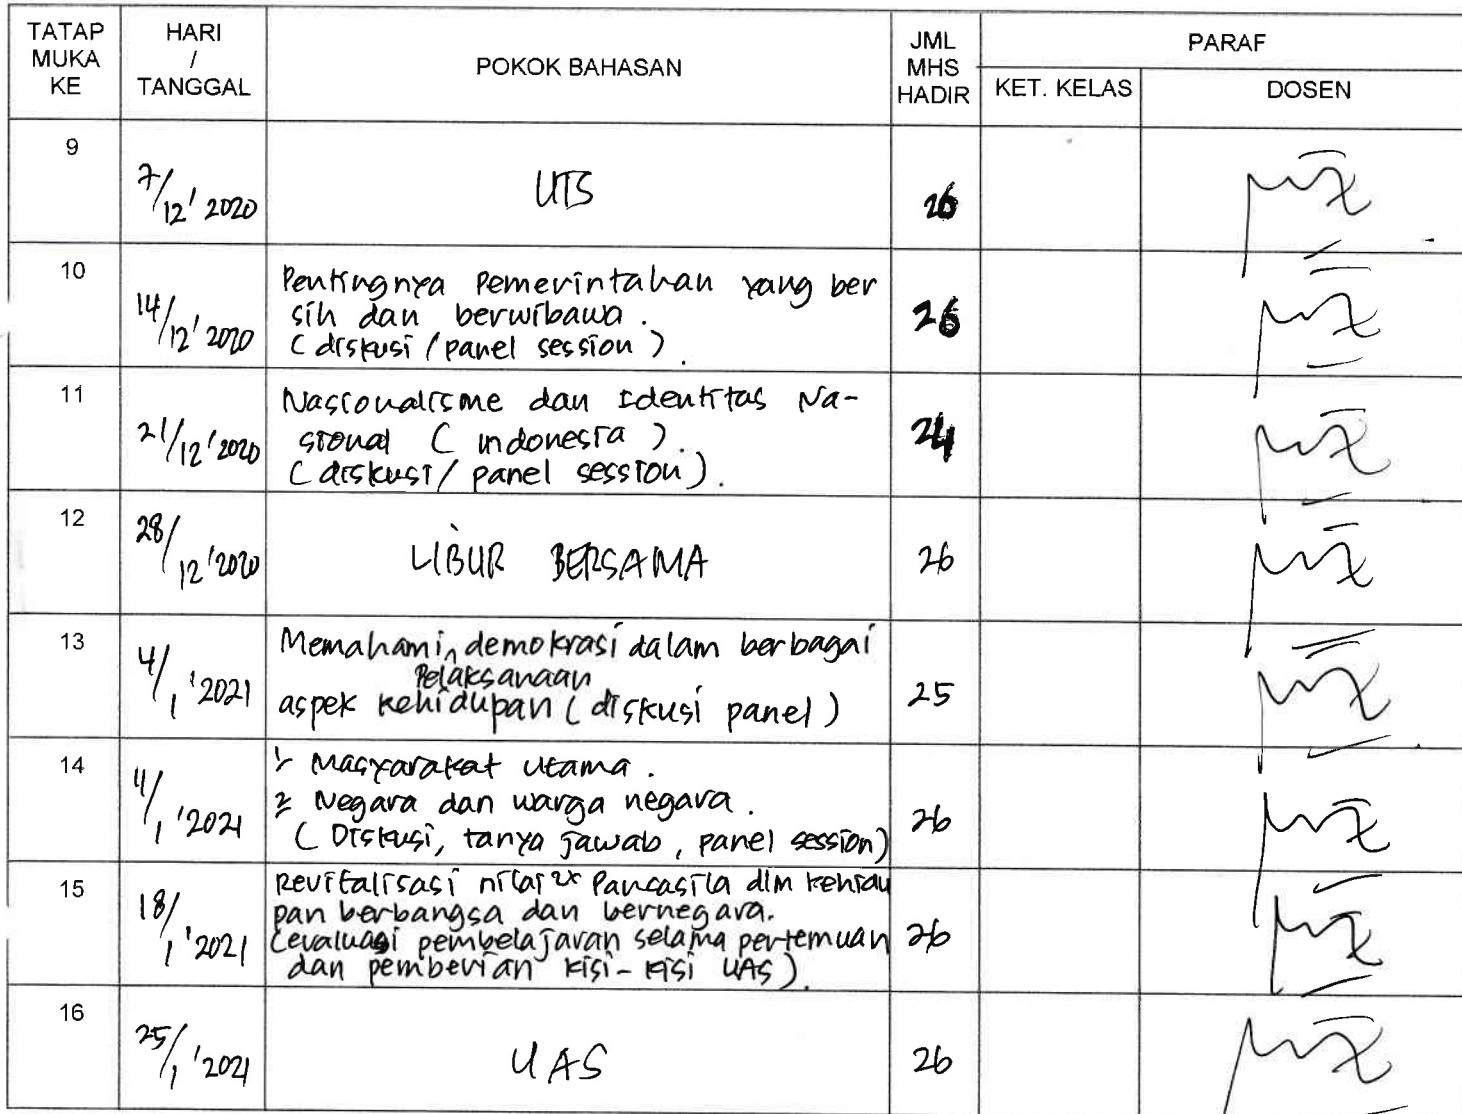 TATAP MUKA KE | HARI / TANGGAL | POKOK BAHASAN | JML MHS HADIR | PARAF
KET. KELAS | DOSEN
9 | 7/12' 2020 | UTS | 26
10 | 14/12' 2020 | Pentingnya Pemerintahan yang ber
sih dan berwibawa.
(diskusi / panel session). | 26
11 | 21/12' 2020 | Nasionalisme dan Identitas Na-
sional (Indonesia).
(diskusi / panel session). | 24
12 | 28/12' 2020 | LIBUR BERSAMA | 26
13 | 4/1 '2021 | Memahami demokrasi dalam berbagai
Pelaksanaan
aspek kehidupan (diskusi panel) | 25
14 | 11/1 '2021 | 1. Masyarakat utama.
2. Negara dan warga negara.
(Diskusi, tanya jawab, panel session) | 26
15 | 18/1 '2021 | Revitalisasi nilai 2x Pancasila dlm kehidu
pan berbangsa dan bernegara.
(evaluasi pembelajaran selama pertemuan
dan pemberian kisi-kisi UAS). | 26
16 | 25/1 '2021 | UAS | 26